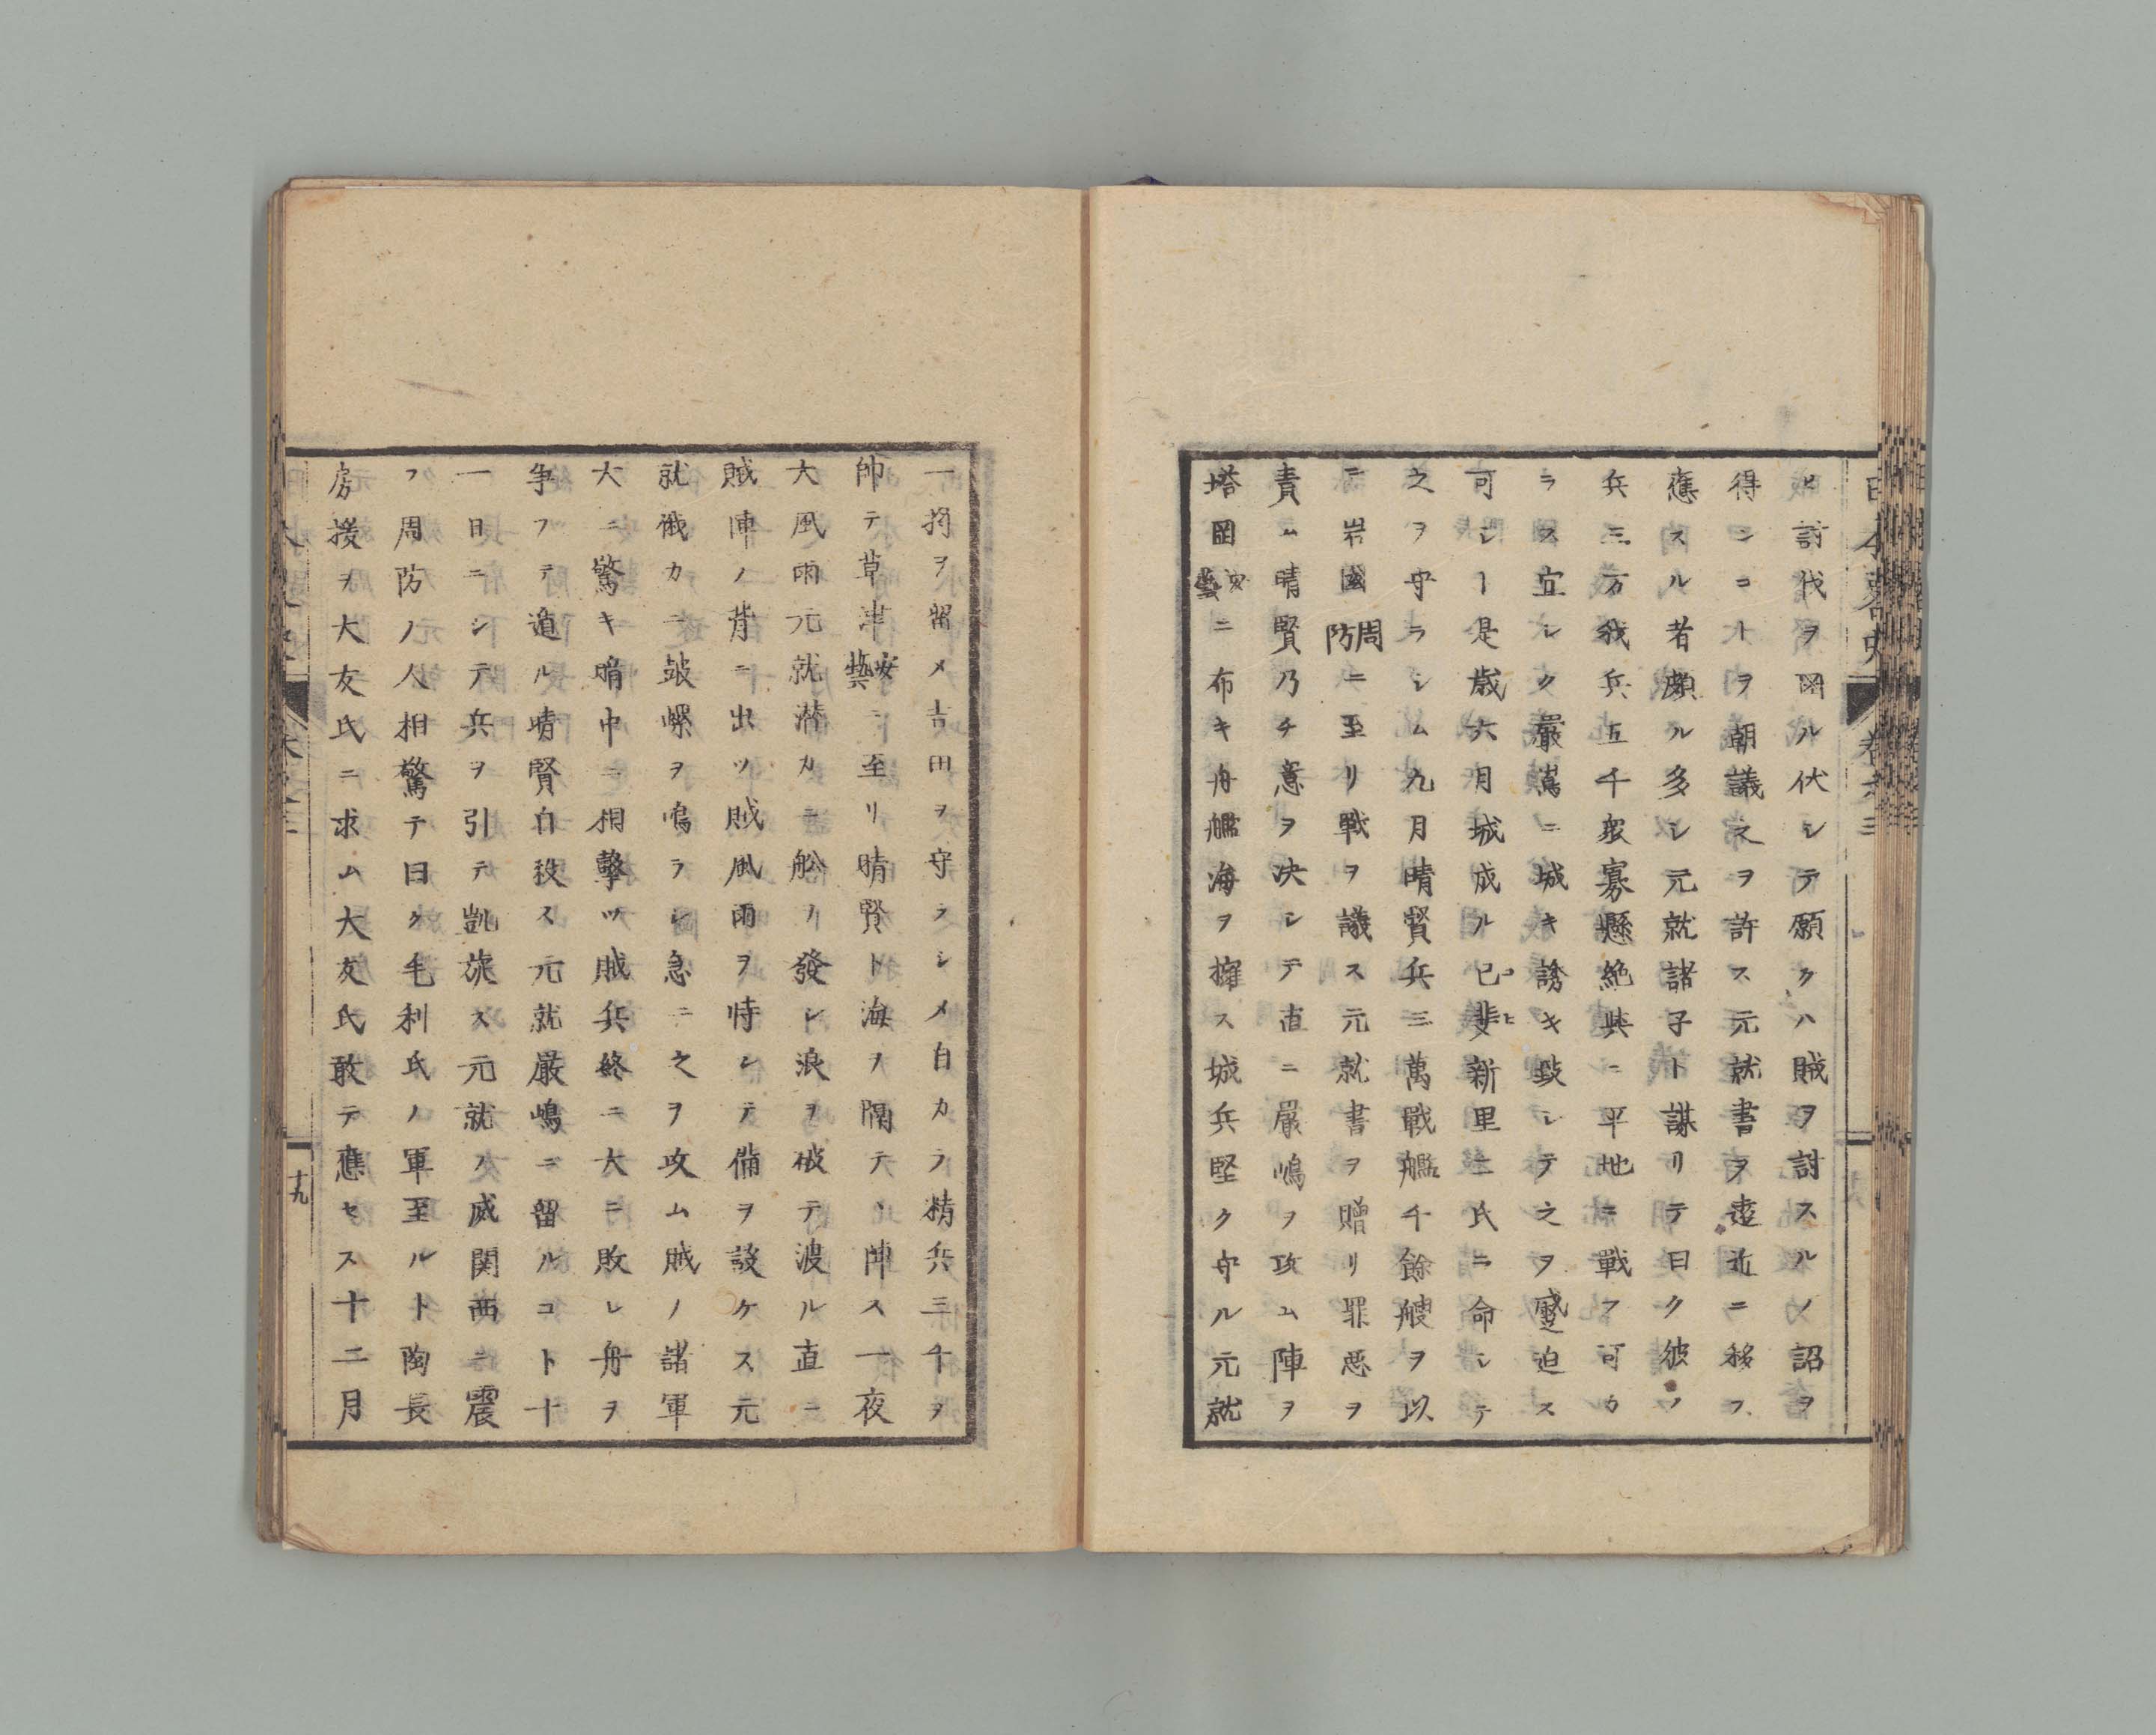 ヒ討伐ヲ図ル伏シテ願クハ賊ヲ討スルノ詔ヲ
得ンコトヲ朝議之ヲ許ス元就書ヲ遠近ニ移ス
應スル者頗ル多シ元就諸子ト謀リテ曰ク彼ノ
兵三万我兵五千衆寡懸絶共ニ平地ニ戦フ可カ
ラス宜シク嚴嶌ニ城キ誘キ致シテ之ヲ蹙迫ス
可シト是歳六月城成ル己斐新里二氏ニ命シテ
之ヲ守ラシム九月晴賢兵三萬戰艦千餘艘ヲ以
テ岩國周防ニ至リ戰ヲ議ス元就書ヲ贈リ罪惡ヲ
責ム晴賢乃チ意ヲ決シテ直ニ嚴嶋ヲ攻ム陣ヲ
塔岡安藝ニ布キ舟艦海ヲ擁ス城兵堅ク守ル元就
一將ヲ畱メ吉田ヲ守ラシメ自カラ精兵三千ヲ
帥テ草津安藝ニ至リ晴賢ト海ヲ隔テヽ陣ス一夜
大風雨元就潜カニ舩ノリ發シ浪ヲ破テ渡ル直ニ
賊陣ノ背ニ出ツ賊風雨ヲ恃シテ備ヲ設ケス元
就俄カニ皷螺ヲ鳴ラシ急ニ之ヲ攻ム賊ノ諸軍
大ニ驚キ暗中ニ相擊ツ賊兵終ニ大ニ敗レ舟ヲ
争フテ逭ル晴賢自殺ス元就厳嶋ニ畱ルコト十
一日ニシテ兵ヲ引テ凱旋ス元就ノ威関西ニ震
フ周防ノ人相驚テ曰ク毛利氏ノ軍至ルト陶長
房援ヲ大友氏ニ求ム大友氏敢テ應セス十二月
十九